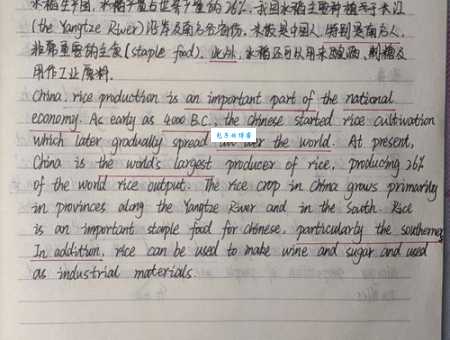 水稻生产国，水稻产量占世界产量的26%。我国水稻主要种植于长江
(the Yangtze River)沿岸及南方各省份。米饭是中国人，特别是南方人，
非常重要的主食(staple food)。此外，水稻还可以用来酿酒、制糖及
用作工业原料。
China, rice production is an important part of the national
economy. As early as 4000 B.C., the chinese started rice cultivation
which later gradually spread all over the world. At present,
China is the world's largest producer of rice, producing 26%
of the world rice output. The rice crop in China grows primarily
in provinces along the Yangtze River and in the South. Rice
is an important staple food for chinese, particularly the southerners
In addition, rice can be used to make wine and sugar and used
as industrial materials.